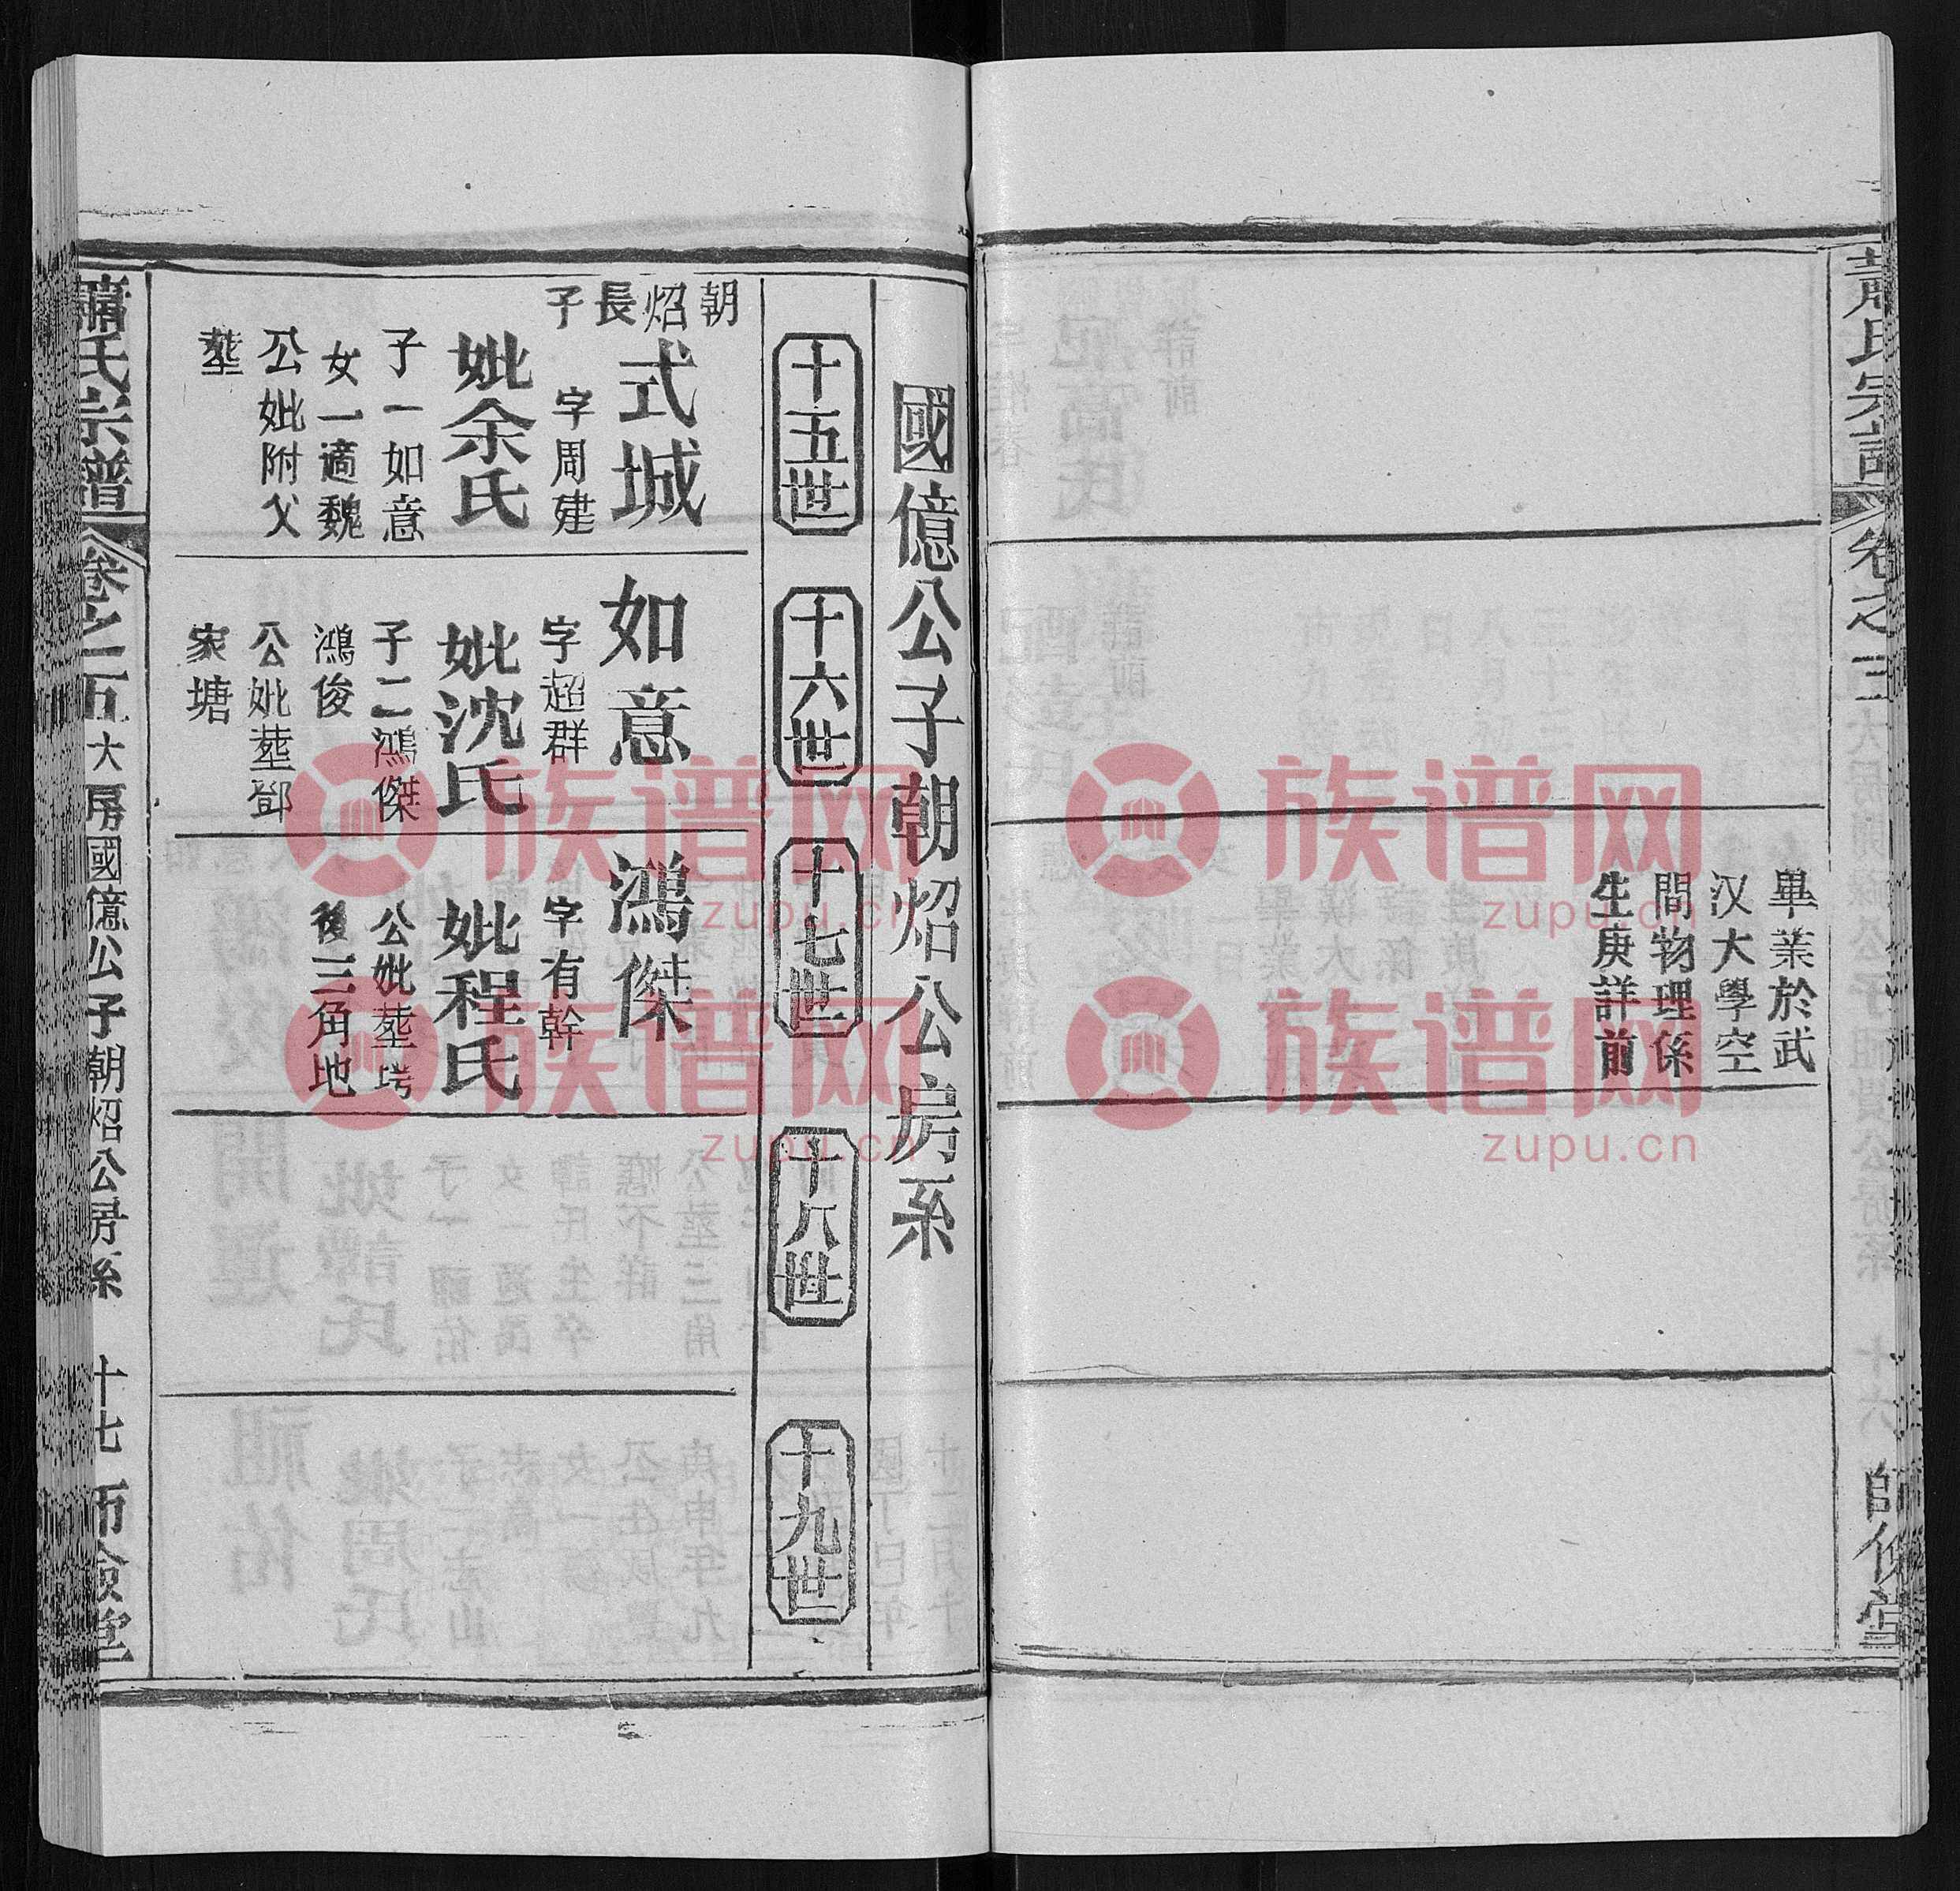 畢業於武
汉大學空
間物理係
生庚詳前
國億公子朝炤公房系
十五世
十六世
十七世
十八世
十九世
朝炤長子
式城
字周建
妣余氏
子一如意
女一適魏
公妣附父
塟
如意
字超群
妣沈氏
子二鴻傑
鴻俊
公妣塟鄧
家塘
鴻傑
字有幹
妣程氏
公妣塟塆
後三角地
蕭氏宗譜
卷之五
大房國億公子朝炤公房系
十七
師儉堂
族谱网
zupu.cn
族谱网
zupu.cn
族谱网
zupu.cn
族谱网
zupu.cn